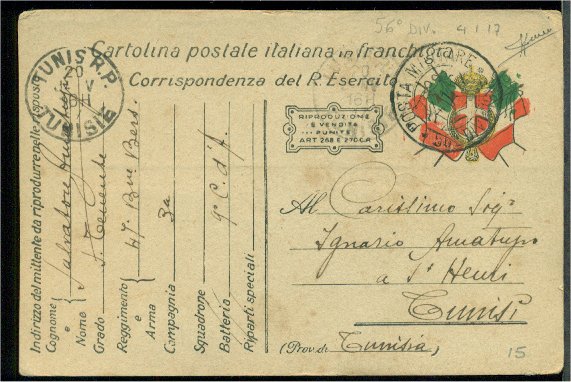 56° Div. 4 1 17
Cartolina postale italiana in franchigia
Corrispondenza del R. Esercito
TUNIS R.P.
20
V
TUNISIE
POSTA MILITARE
56
RIPRODUZIONE
E VENDITA
PUNITE
ART 268 E 270 C.P.
Indirizzo del mittente da riprodurre nelle risposte
Cognome e Nome Salvatore
Grado S. Tenente
Reggimento e Arma 47° Bers.
Compagnia 3a
Squadrone
Batteria 9° C. d'A.
Riparti speciali
Al Carissimo Sig.
Ignazio Amatupo
a St Henri
Tunisi
(Prov. di Tunisia)
15